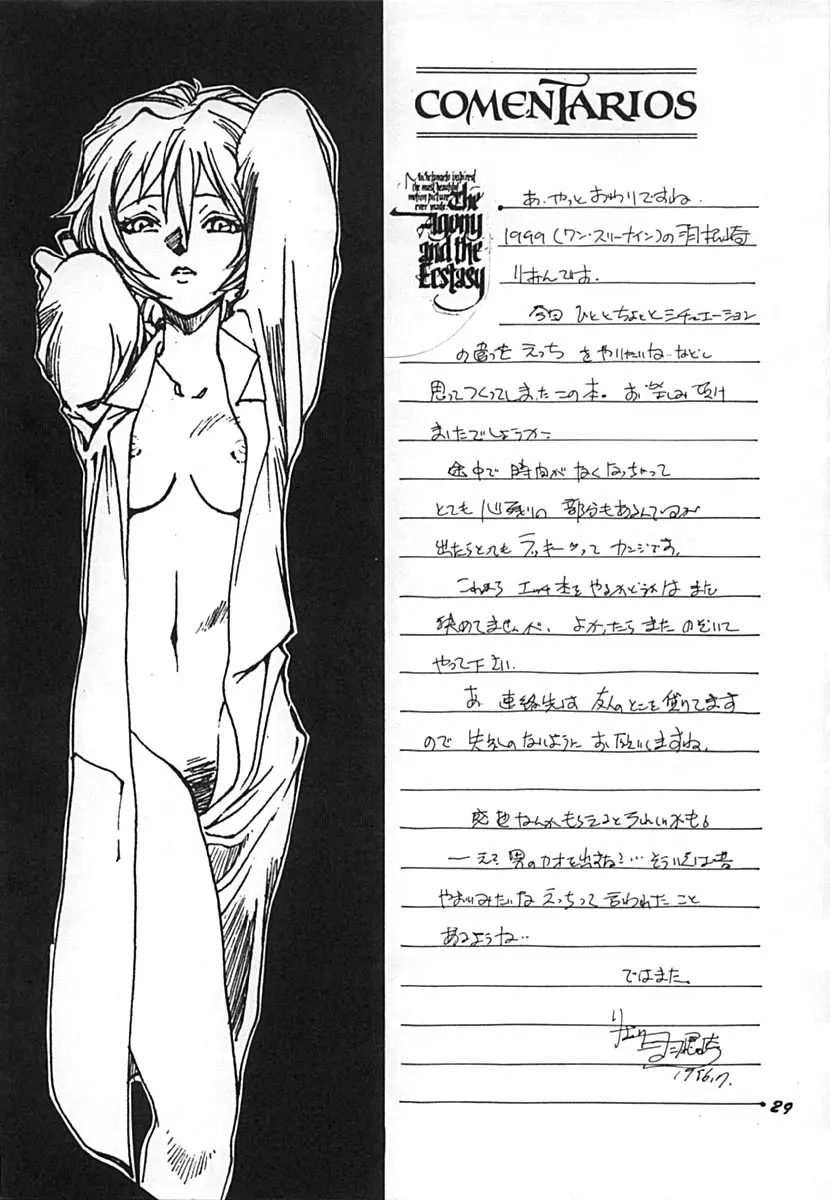 COMENTARIOS
Michelangelo inspired
the most beautiful
motion picture
ever made:
The
Agony
and the
Ecstasy
あ、やっとおわりですね.
1999(ワン・スリーナイン)の羽根崎
りおんです.
今回 ひとこと ちょっと シチュエーション
の違ったえっちをやりたいね‥などと
思ってつくってしまったこの本。お楽しみ頂け
ましたでしょうか?
途中で時間がなくなっちゃって
とても心残りの部分もあるんているが
出たらとてもラッキーってカンジです。
これからエッチ本をやるかどうかはまだ
決めてませんが、よかったらまたのぞいて
やって下さい.
あ 連絡先は友人のとこを借りてます
ので失礼のないようにお願いしますね。
感想なんかもらえるとうれしいかも。
―え?男のカオを出すな?…そういえば昔
やおいみたいなえっちって言われたこと
あるような‥
ではまた。
29